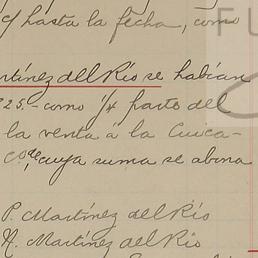 y hasta la fecha, como
rtínez del Río se habían
225.- como 1/4 parte del
la venta á la Cuica-
Co. de, cuya suma se abona
P. Martínez del Río
N. Martínez del Río